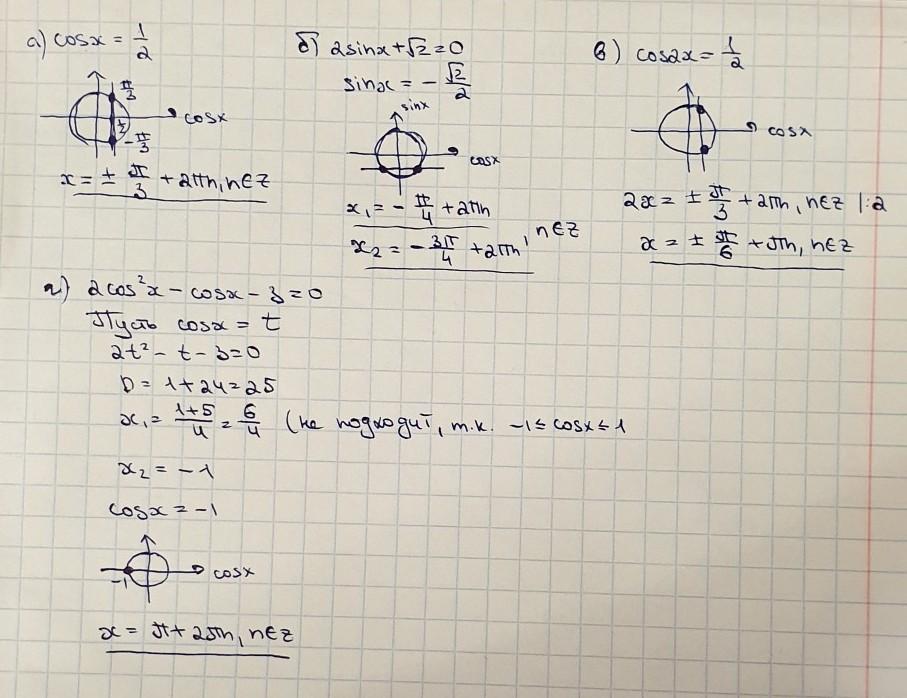 а) cosx = 1/2
π/3
1/2
cosx
-π/3
x = ± π/3 + 2πn, n∈Z
б) 2sinx + √2 = 0
sinx = - √2/2
sinx
cosx
x₁ = - π/4 + 2πn
x₂ = - 3π/4 + 2πn, n∈Z
в) cos2x = 1/2
cosx
2x = ± π/3 + 2πn, n∈Z |:2
x = ± π/6 + πn, n∈Z
г) 2cos²x - cosx - 3 = 0
Пусть cosx = t
2t² - t - 3 = 0
D = 1 + 24 = 25
x₁ = 1+5/4 = 6/4 (не подходит, т.к. -1 ≤ cosx ≤ 1
x₂ = -1
cosx = -1
cosx
-1
x = π + 2πn, n∈Z